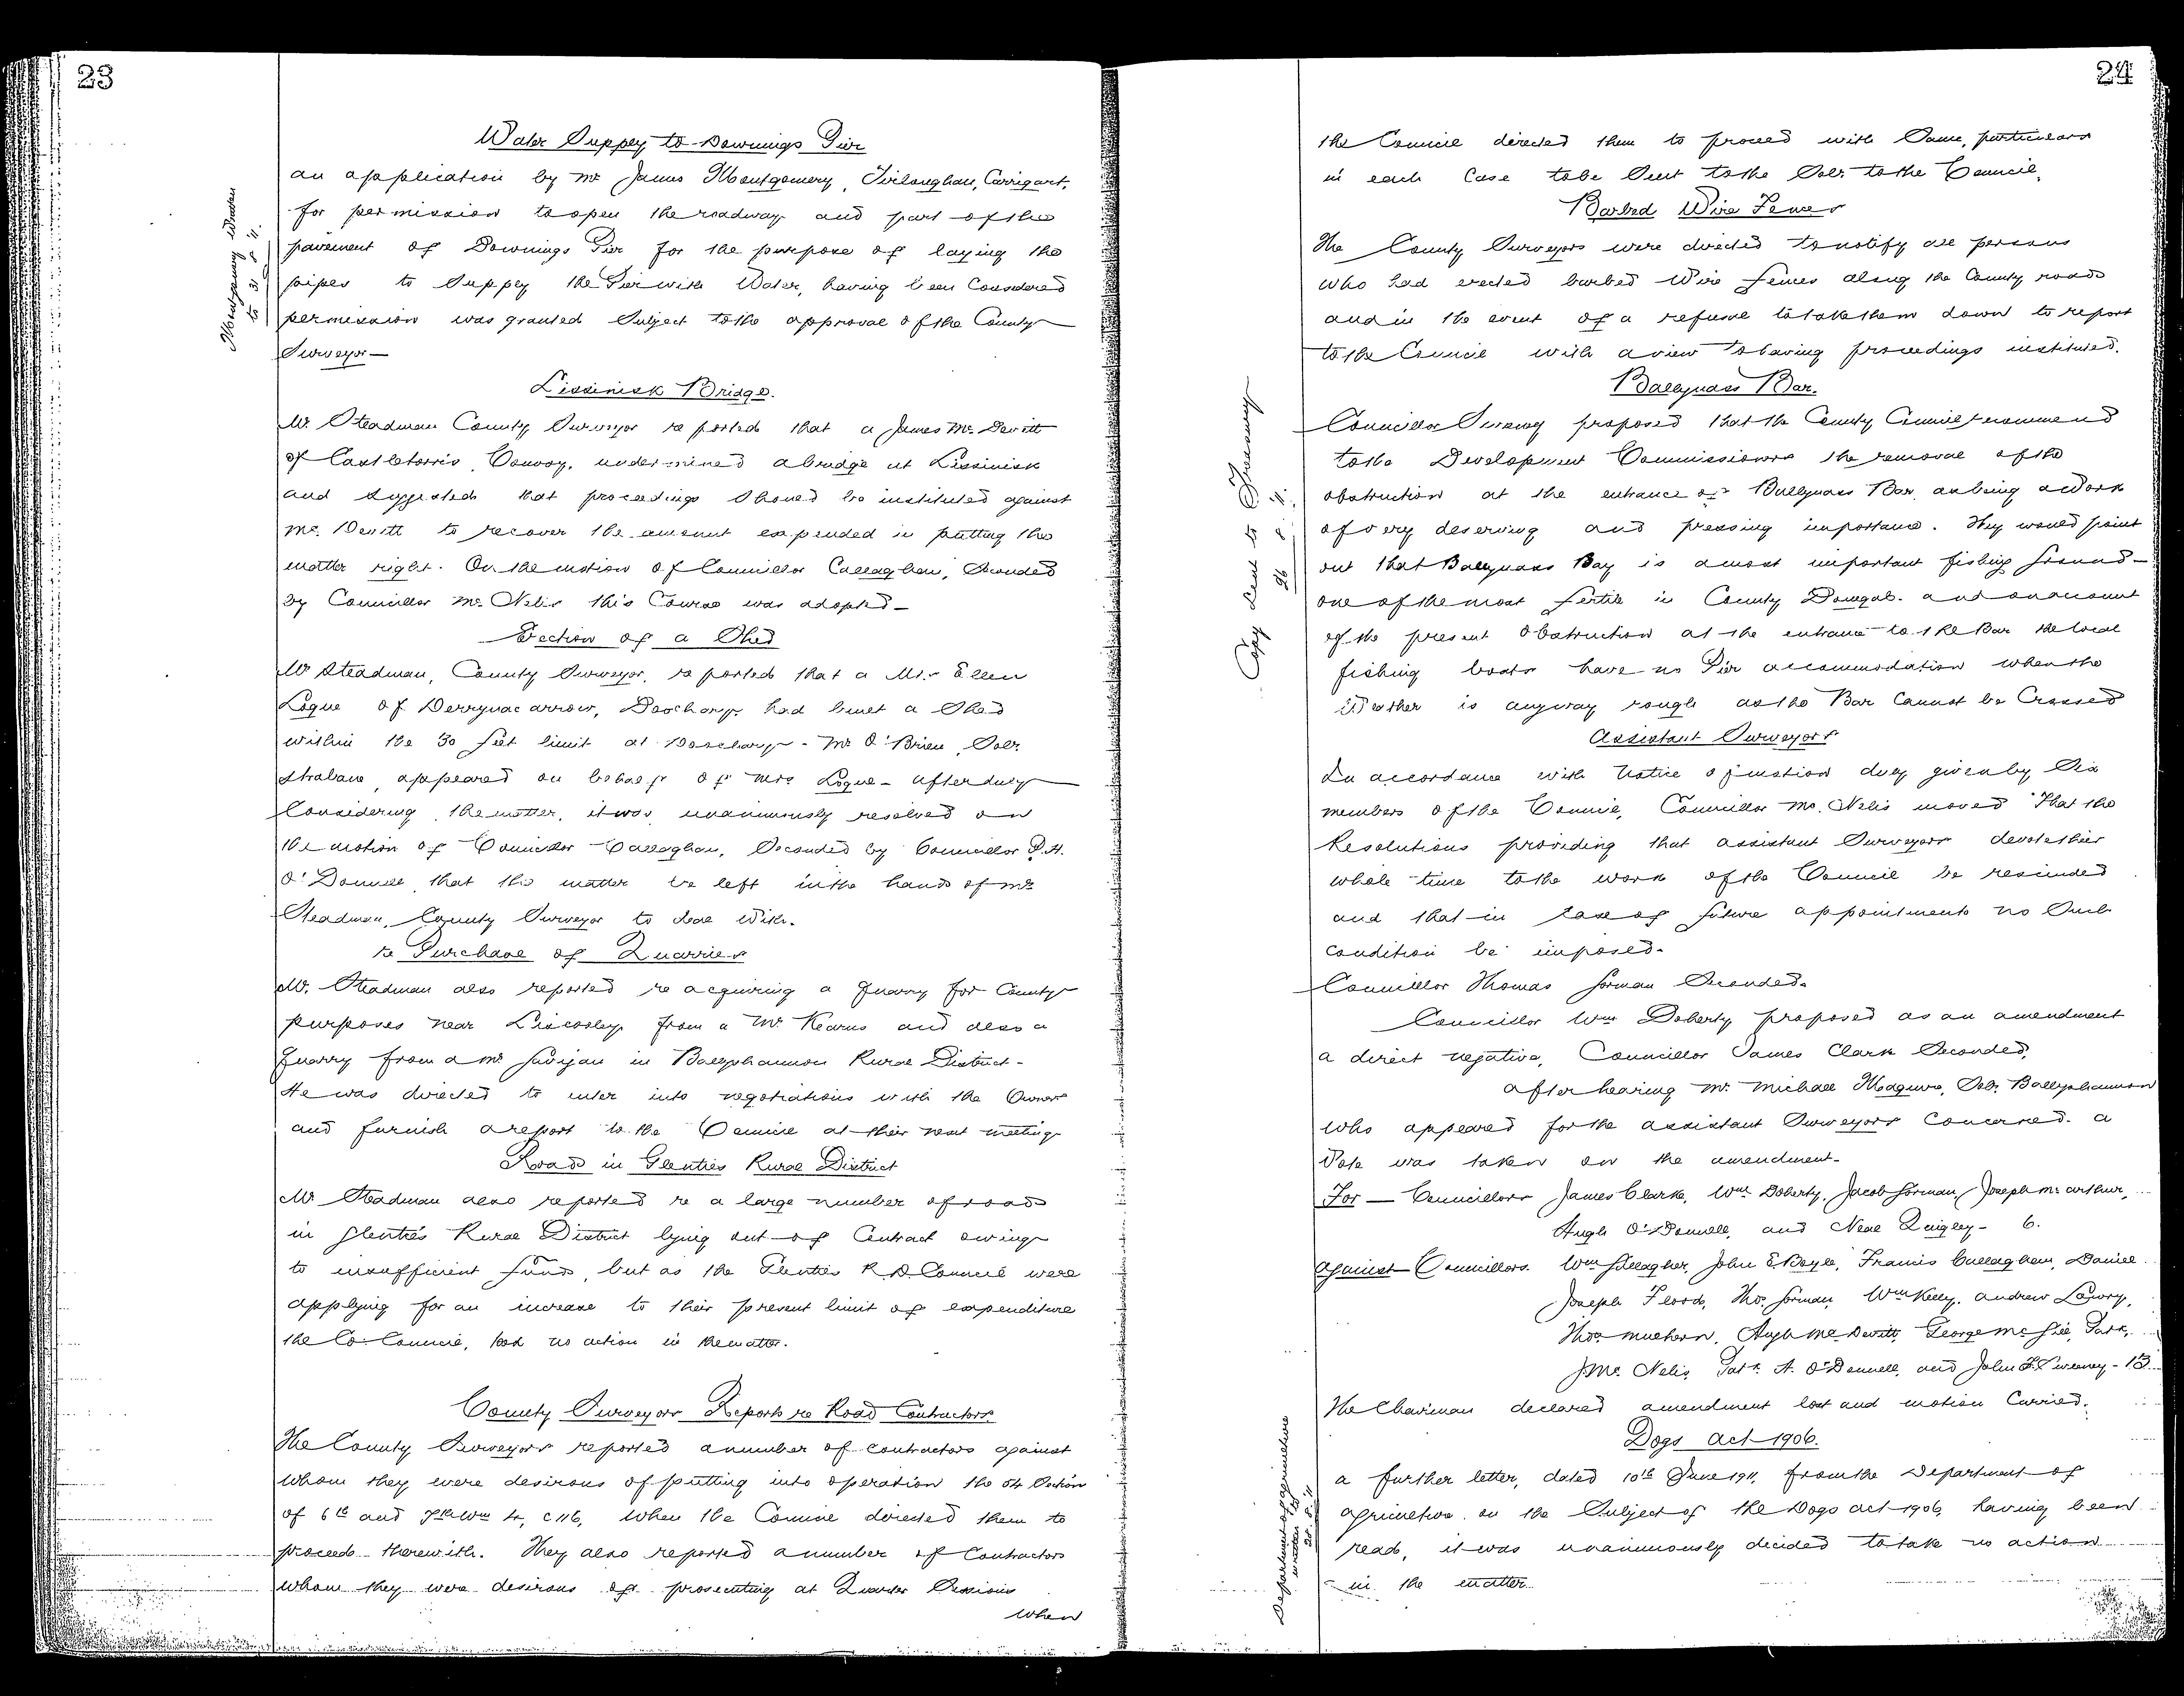 23
Water Supply to Downings Pier
an application by Mr James Montgomery, Carrigart,
for permission to open the roadway and part of the
pavement of Downings Pier for the purpose of laying the
pipes to Supply the Pier with Water, having been Considered
permission was granted Subject to the approval of the County
Surveyor—
Montgomery written
to 31/8/11.
Lissinisk Bridge.
Mr Steadman County Surveyor reported that a James McDevitt
of Castletorris, Convoy, undermined a bridge at Lissinisk
and suggested that proceedings should be instituted against
McDevitt to recover the amount expended in putting the
matter right. On the motion of Councillor Callaghan, Seconded
by Councillor McNelis this Course was adopted—
Erection of a Shed
Mr Steadman, County Surveyor, reported that a Mrs Ellen
Logue of Derrynacarrow, Doochary, had built a Shed
within the 30 feet limit at Doochary - Mr O'Brien, Solr
Strabane, appeared on behalf of Mrs Logue - after duly
Considering the matter, it was unanimously resolved on
the motion of Councillor Callaghan, Seconded by Councillor P.A.
O'Donnell, that the matter be left in the hands of Mr
Steadman, County Surveyor to deal with.
re Purchase of Quarries
Mr. Steadman also reported re acquiring a Quarry for County
purposes near Liscooley from a Mr Kearns and also a
Quarry from a Mr in Ballyshannon Rural District-
He was directed to enter into negotiations with the Owners
and furnish a report to the Council at their next meeting
Roads in Glenties Rural District
Mr Steadman also reported re a large number of roads
in Glenties Rural District lying out of Contract owing
to insufficient funds, but as the Glenties R.D. Council were
applying for an increase to their present limit of expenditure
the Co. Council, took no action in the matter.
County Surveyors Reports re Road Contractors
The County Surveyors reported a number of contractors against
whom they were desirous of putting into operation the 54 Section
of 6th and 7th Wm 4, c 116, when the Council directed them to
proceed therewith. They also reported a number of Contractors
whom they were desirous of prosecuting at Quarter Sessions
when
24
the Council directed them to proceed with Same, particulars
in each Case to be Sent to the Solr. to the Council.
Barbed Wire Fences
The County Surveyors were directed to notify all persons
who had erected barbed Wire fences along the County roads
and in the event of a refusal to take them down to report
to the Council with a view to having proceedings instituted.
Ballyness Bar.
Councillor Sweeney proposed that the County Council recommend
to the Development Commissioners the removal of the
obstruction at the entrance of Ballyness Bar, as being a work
of very deserving and pressing importance. They would point
out that Ballyness Bay is a most important fishing ground -
one of the most fertile in County Donegal. and on account
of the present Obstruction at the entrance to the Bar the local
fishing boats have no Pier accommodation when the
Weather is anyway rough as the Bar Cannot be Crossed
Copy sent to Treasury
26/8/11.
Assistant Surveyors
In accordance with Notice of motion duly given by Six
members of the Council, Councillor McNelis moved That the
Resolutions providing that assistant Surveyors devote their
whole time to the work of the Council be rescinded
and that in case of future appointments no Such
condition be imposed-
Councillor Thomas Gorman Seconded.
Councillor Wm Doherty proposed as an amendment
a direct negative, Councillor James Clark Seconded,
after hearing Mr. Michael Maguire, Solr. Ballyshannon
who appeared for the assistant Surveyors Concerned. a
Vote was taken on the amendment-
For — Councillors James Clarke, Wm Doherty, Jacob Gorman, Joseph McArthur,
Hugh O'Donnell, and Neal Quigley - 6.
against Councillors Wm Gallagher, John E Boyle, Francis Callaghan, Daniel
Joseph Flood, Thos. Gorman, Wm Kelly, Andrew Lowry,
Thos. Mulhern, Hugh McDevitt, George McGee, Patk.
J. McNelis, Patk. A. O'Donnell, and John F. Sweeney - 13
The Chairman declared amendment lost and motion Carried.
Dogs act 1906.
a further letter, dated 10th June 1911, from the Department of
agriculture on the Subject of the Dogs act 1906, having been
read, it was unanimously decided to take no action
in the matter
Department of agriculture
written to